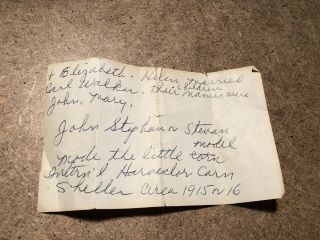 + Elizabeth. Helen married
Carl Walker. their children names were
John, Mary.
John Stephan or Stevan
made the little model corn
Intrn'l. Harvestor Corn
Sheller Circa 1915 or 16